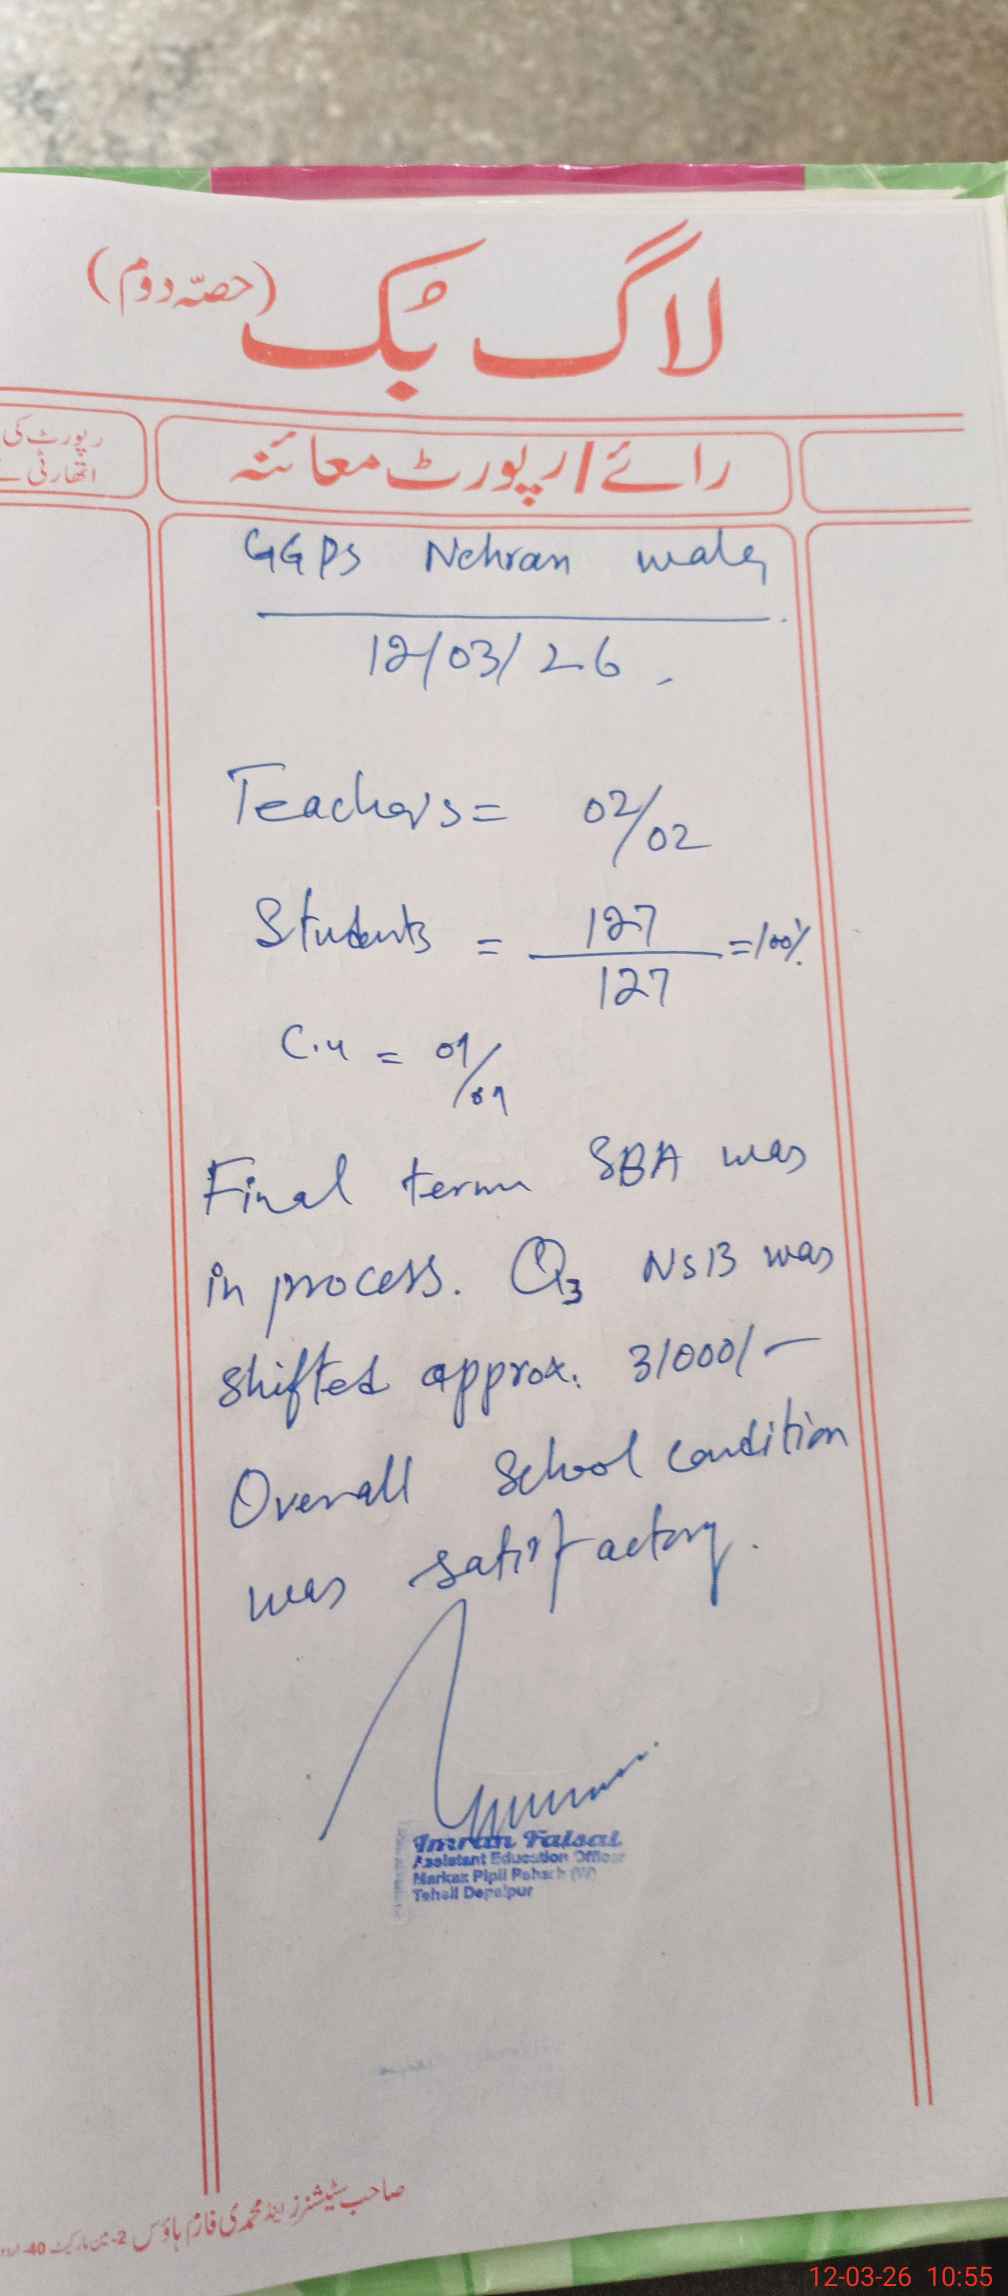 لاگ بُک (حصّہ دوم)
رائے / رپورٹ معائنہ
رپورٹ کی
اتھارٹی کے
GGPS Nehran wala
12/03/26
Teachers = 02/02
Students = 127/127 = 100%
C.4 = 01/01
Final term SBA was
in process. Q3 NSB was
shifted approx. 31000/-
Overall School condition
was satisfactory.
Imran Faisal
Assistant Education Officer
Markaz Pipli Pahar (W)
Tehsil Depalpur
صاحب سٹیشنرز اینڈ محمدی فارم ہاؤس 2-مین مارکیٹ 40-اردو
12-03-26 10:55